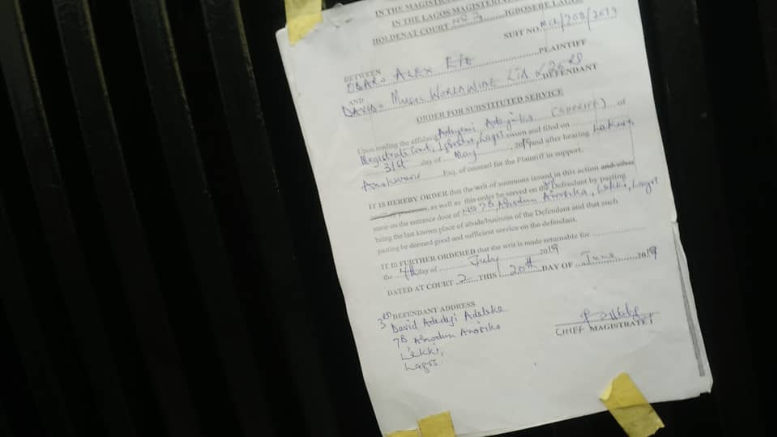 IN THE MAGISTRATE
IN THE LAGOS MAGISTERIAL
HOLDEN AT COURT IGBOSERE LAGOS
SUIT NO
BETWEEN
OBA= ALEX PLAINTIFF
AND
DAVID= MUSIC WORLDWIDE LTD & 2 ORS DEFENDANT
ORDER FOR SUBSTITUTED SERVICE
Upon reading the affidavit (SHERIFF) of
Magistrate Court, Igbosere, Lagos sworn and filed on
31st day of May 2019 and after hearing
Esq. of counsel for the Plaintiff in support.
IT IS HEREBY ORDER that the writ of summons issued in this action and other
as well as this order be served on the Defendant by pasting
same on the entrance door of No 7B, Lekki, Lagos
being the last known place of abode/business of the Defendant and that such
pasting be deemed good and sufficient service on the defendant.
IT IS FURTHER ORDERED that the writ is made returnable for
the 4th day of July 2019
DATED AT COURT 2 THIS 20th DAY OF June 2019
3RD DEFENDANT ADDRESS
David Adedeji Adeleke
7B
Lekki,
Lagos
CHIEF MAGISTRATE I